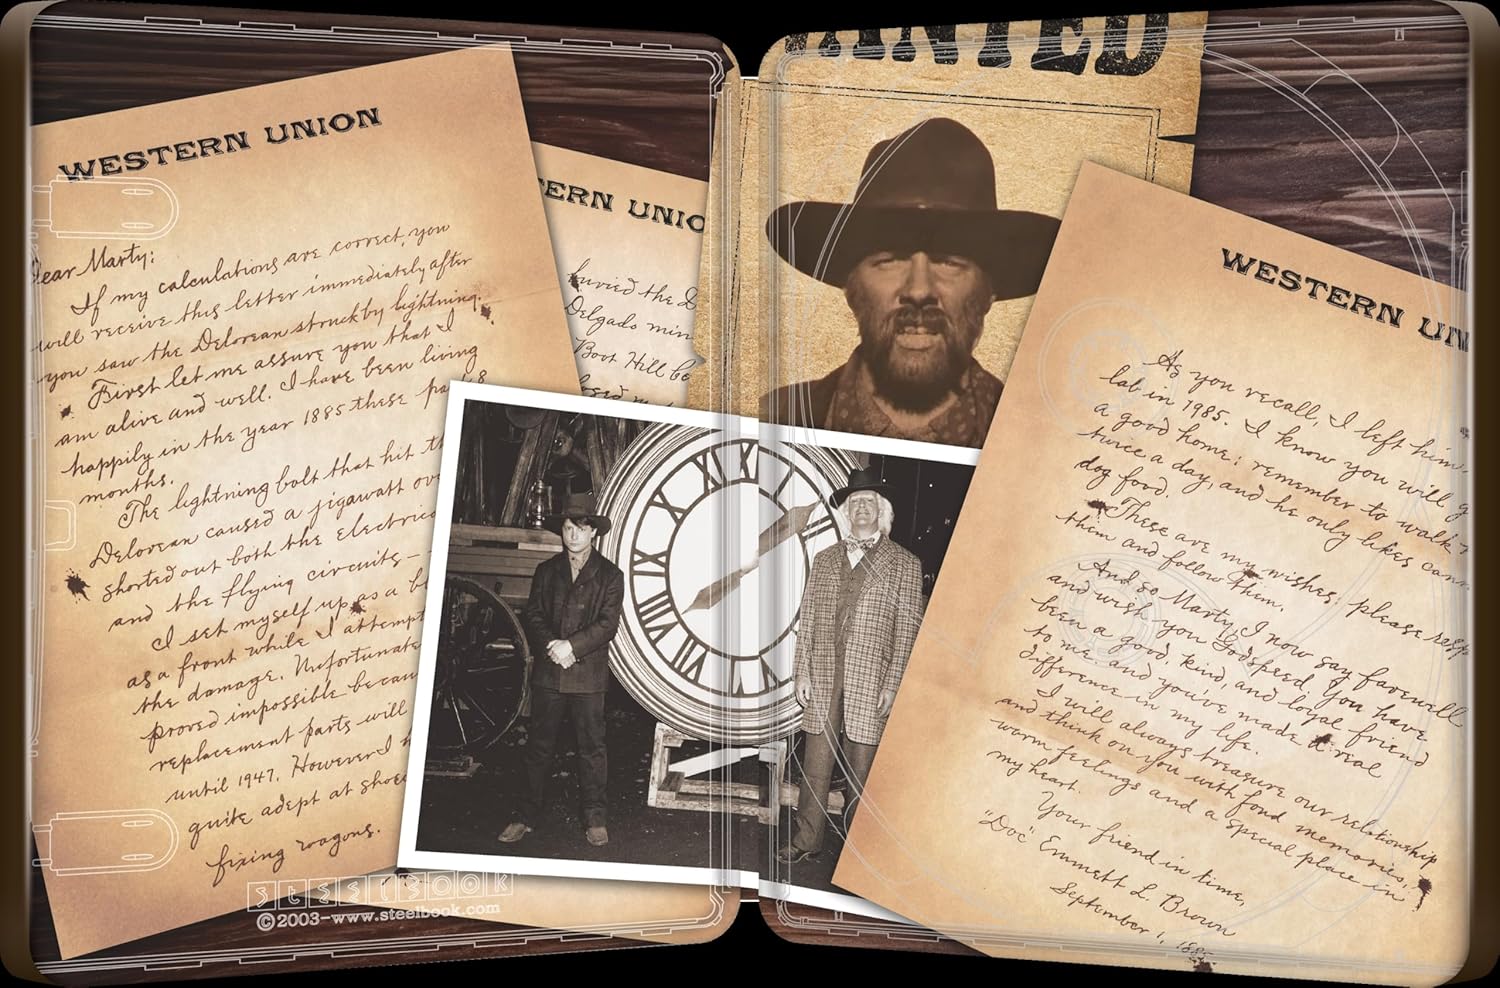 WESTERN UNION
ear Marty:
If my calculations are correct, you
will receive this letter immediately after
you saw the Delorean struck by lightning.
First let me assure you that I
am alive and well. I have been living
happily in the year 1885 these pa 8
months.
The lightning bolt that hit th
Delorean caused a jigawatt ov
shorted out both the electric
and the flying circuits –
I set myself up as a b
as a front while I attempt
the damage. Unfortunate
proved impossible becau
replacement parts will
until 1947. However I
quite adept at shoe
fixing wagons.
TERN UNIO
buried the D
Delgado min
Boot Hill be
WANTED
XII
I
II
III
VI
VII
VIII
IX
X
XI
WESTERN UN
As you recall, I left him
lab in 1985. I know you will g
a good home: remember to walk
twice a day, and he only likes cann
dog food.
These are my wishes; please resp
them and follow them.
And so Marty, I now say farewell
and wish you Godspeed. You have
been a good, kind, and loyal friend
to me and you've made a real
difference in my life.
I will always treasure our relationship
and think on you with fond memories,
warm feelings and a special place in
my heart.
Your friend in time,
"Doc" Emmett L. Brown
September 1, 1885
steelbook
©2003-www.steelbook.com